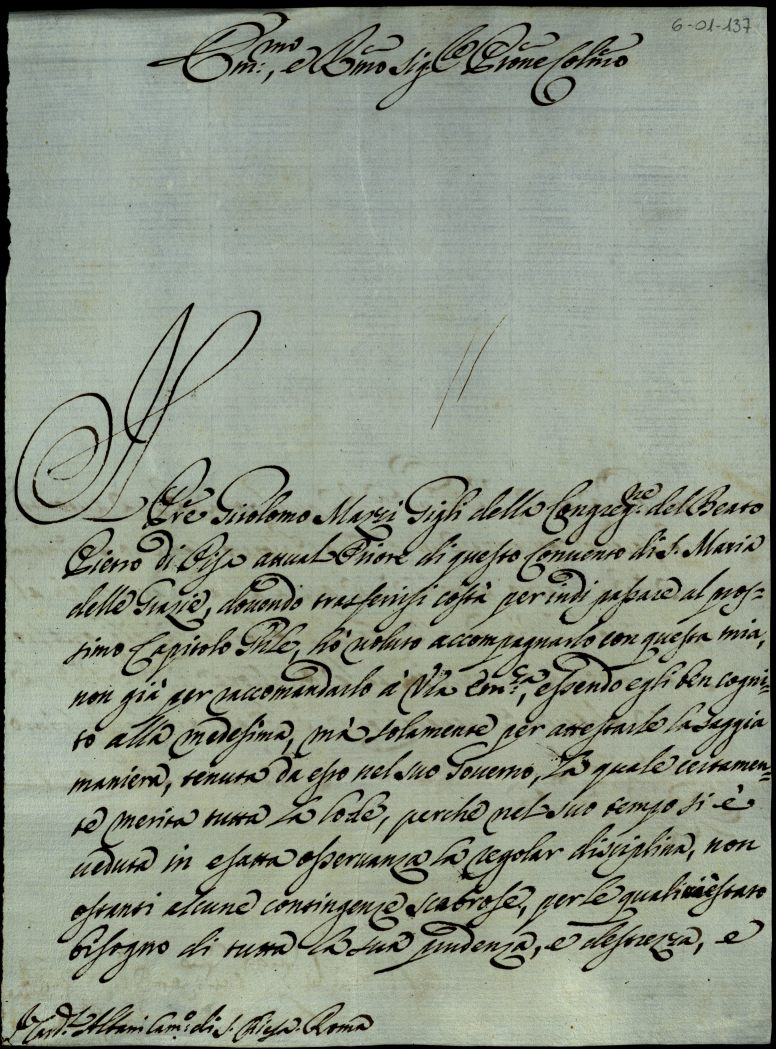 6-01-137
Em.mo, e Rmo Sig.re Prōne Colmo
Il Pre Girolomo Marzi Gigli della Congreg.ne del Beato
Pietro di Pisa attual Priore di questo Convento di S. Maria
delle Grazie, dovendo trasferirsi costà per indi passare al pros=
simo Capitolo Gñle, hò voluto accompagnarlo con questa mia,
non già per raccomandarlo à Vra Em.za, essendo egli ben cogni=
to alla medesima, mà solamente per attestarle la saggia
maniera, tenuta da esso nel suo Governo, la quale certamen=
te merita tutta la lode, perche nel suo tempo si è
veduta in esatta osservanza la regolar disciplina, non
ostanti alcune contingenze scabrose, per le quali vi è stato
bisogno di tutta la sua prudenza, e destrezza, e
Card.l Albani Cam.o di S. Chiesa. Roma